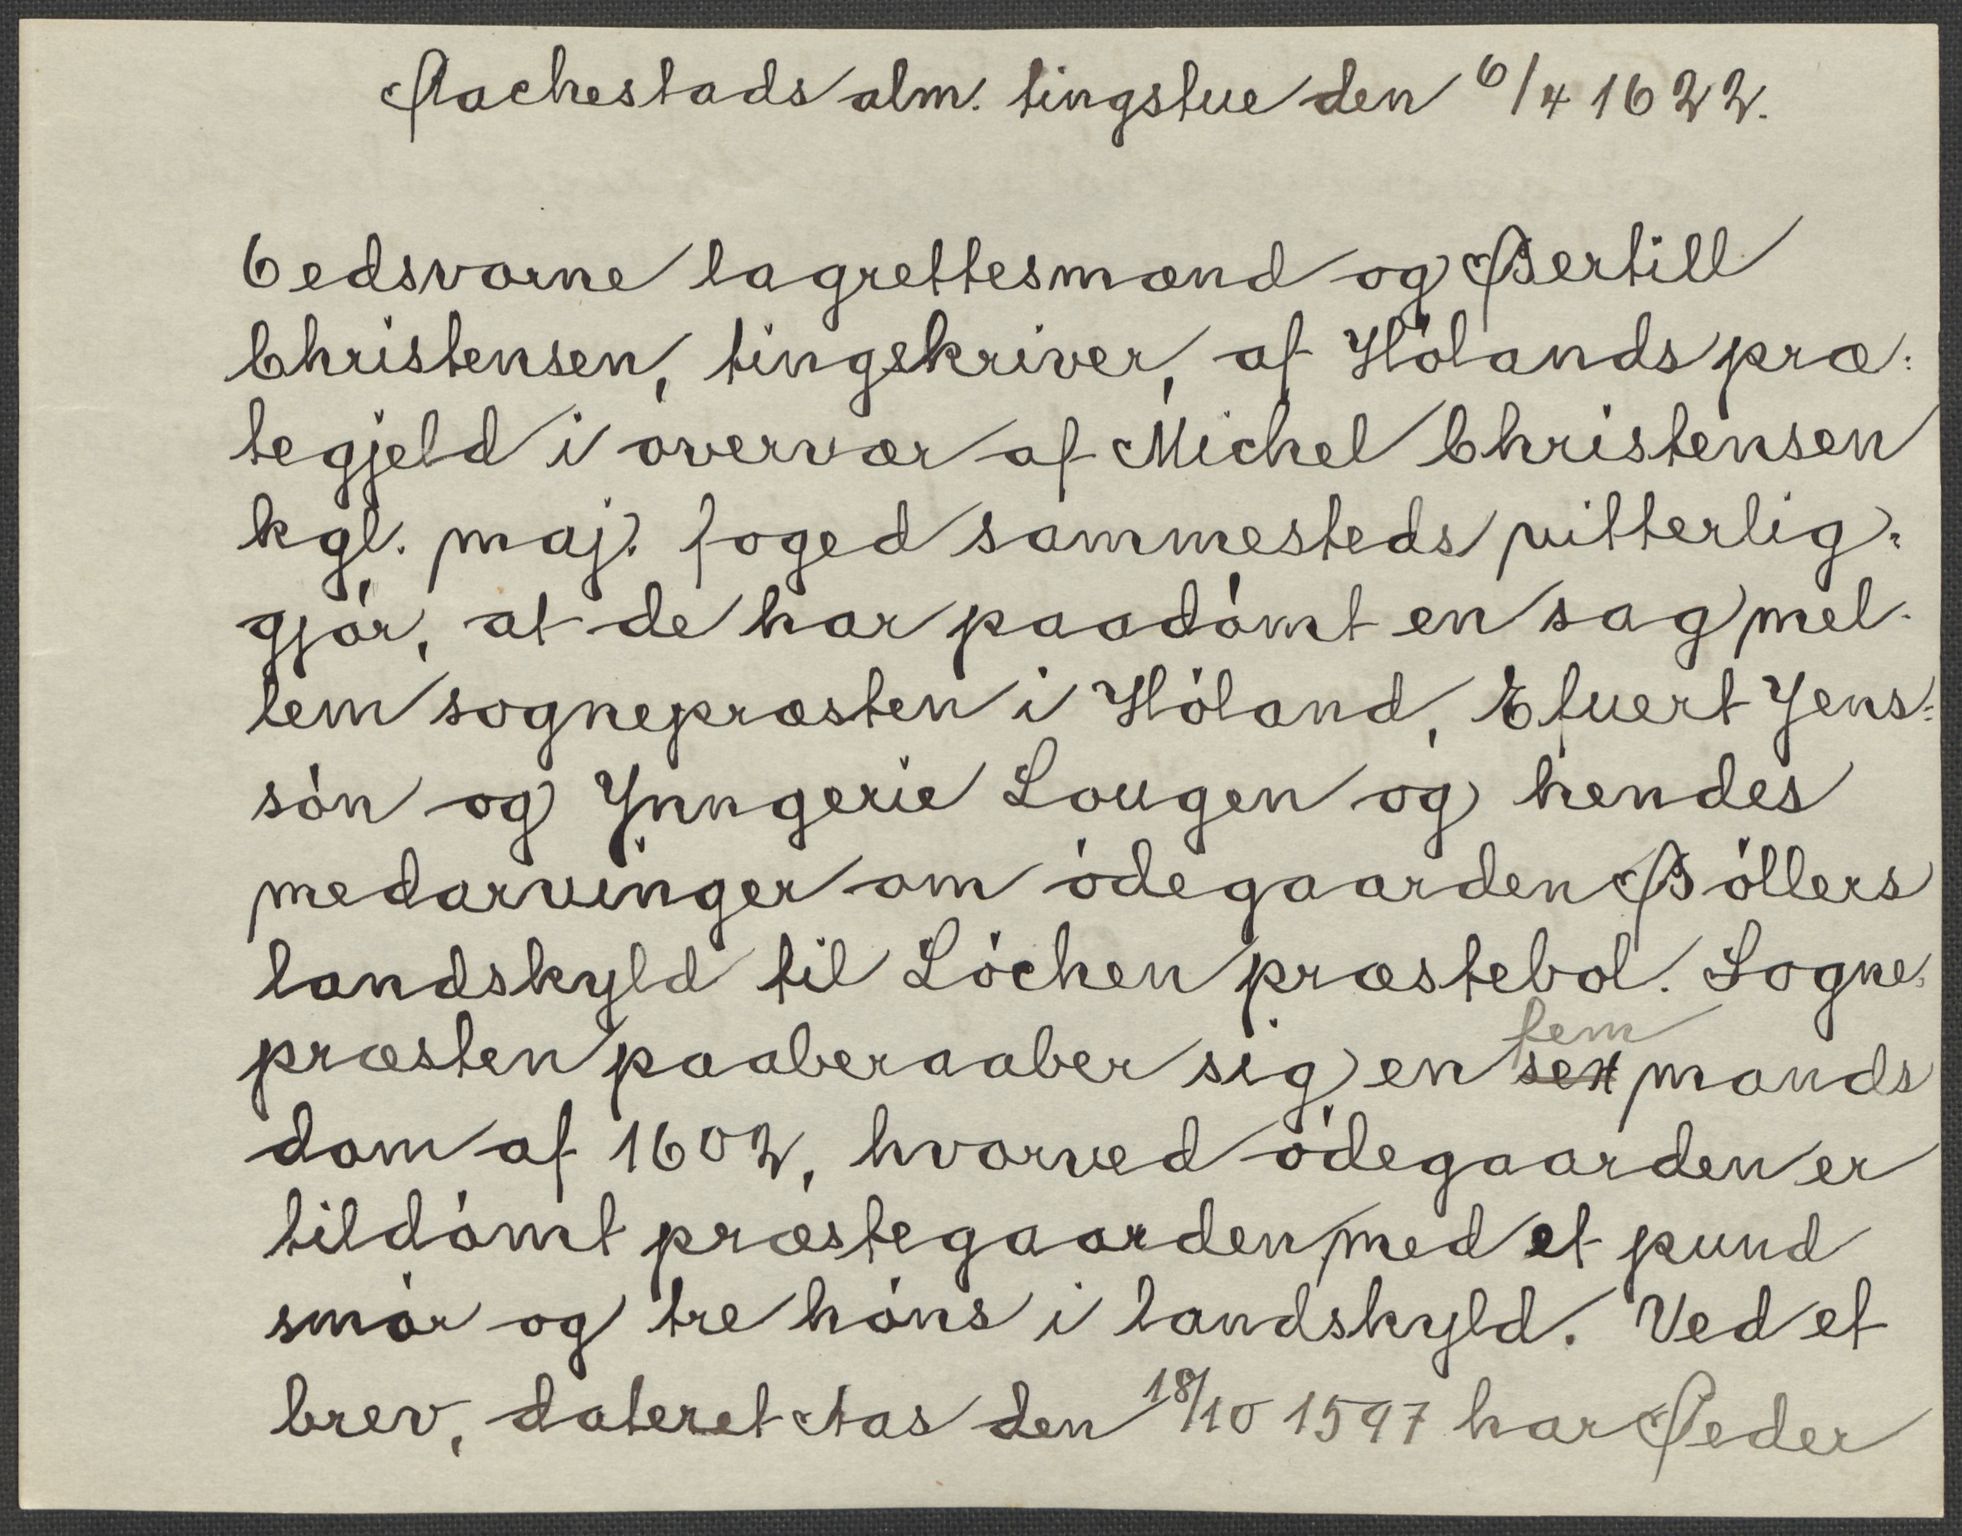 Aachestads alm. tingstue den 6/4 1622.
6 edsvorne lagrettesmænd og Bertill
Christensen, tingskriver, af Hölands præ:
tegjeld i overvær af Michel Christensen
kgl. maj. foged sammesteds vitterlig-
gjör, at de har paadömt en sag mel-
lem sognepræsten i Höland, Efuert Jens-
sön og Ynngerie Lougen og hendes
medarvinger om ödegaarden Böllers
landskyld til Löchen præstebol. Sogne-
præsten paaberaaber sig en sex fem mands
dom af 1602, hvorved ödegaarden er
tildömt præstegaarden med et pund
smör og tre höns i landskyld. Ved et
brev, dateret Aas den 18/10 1597 har Peder